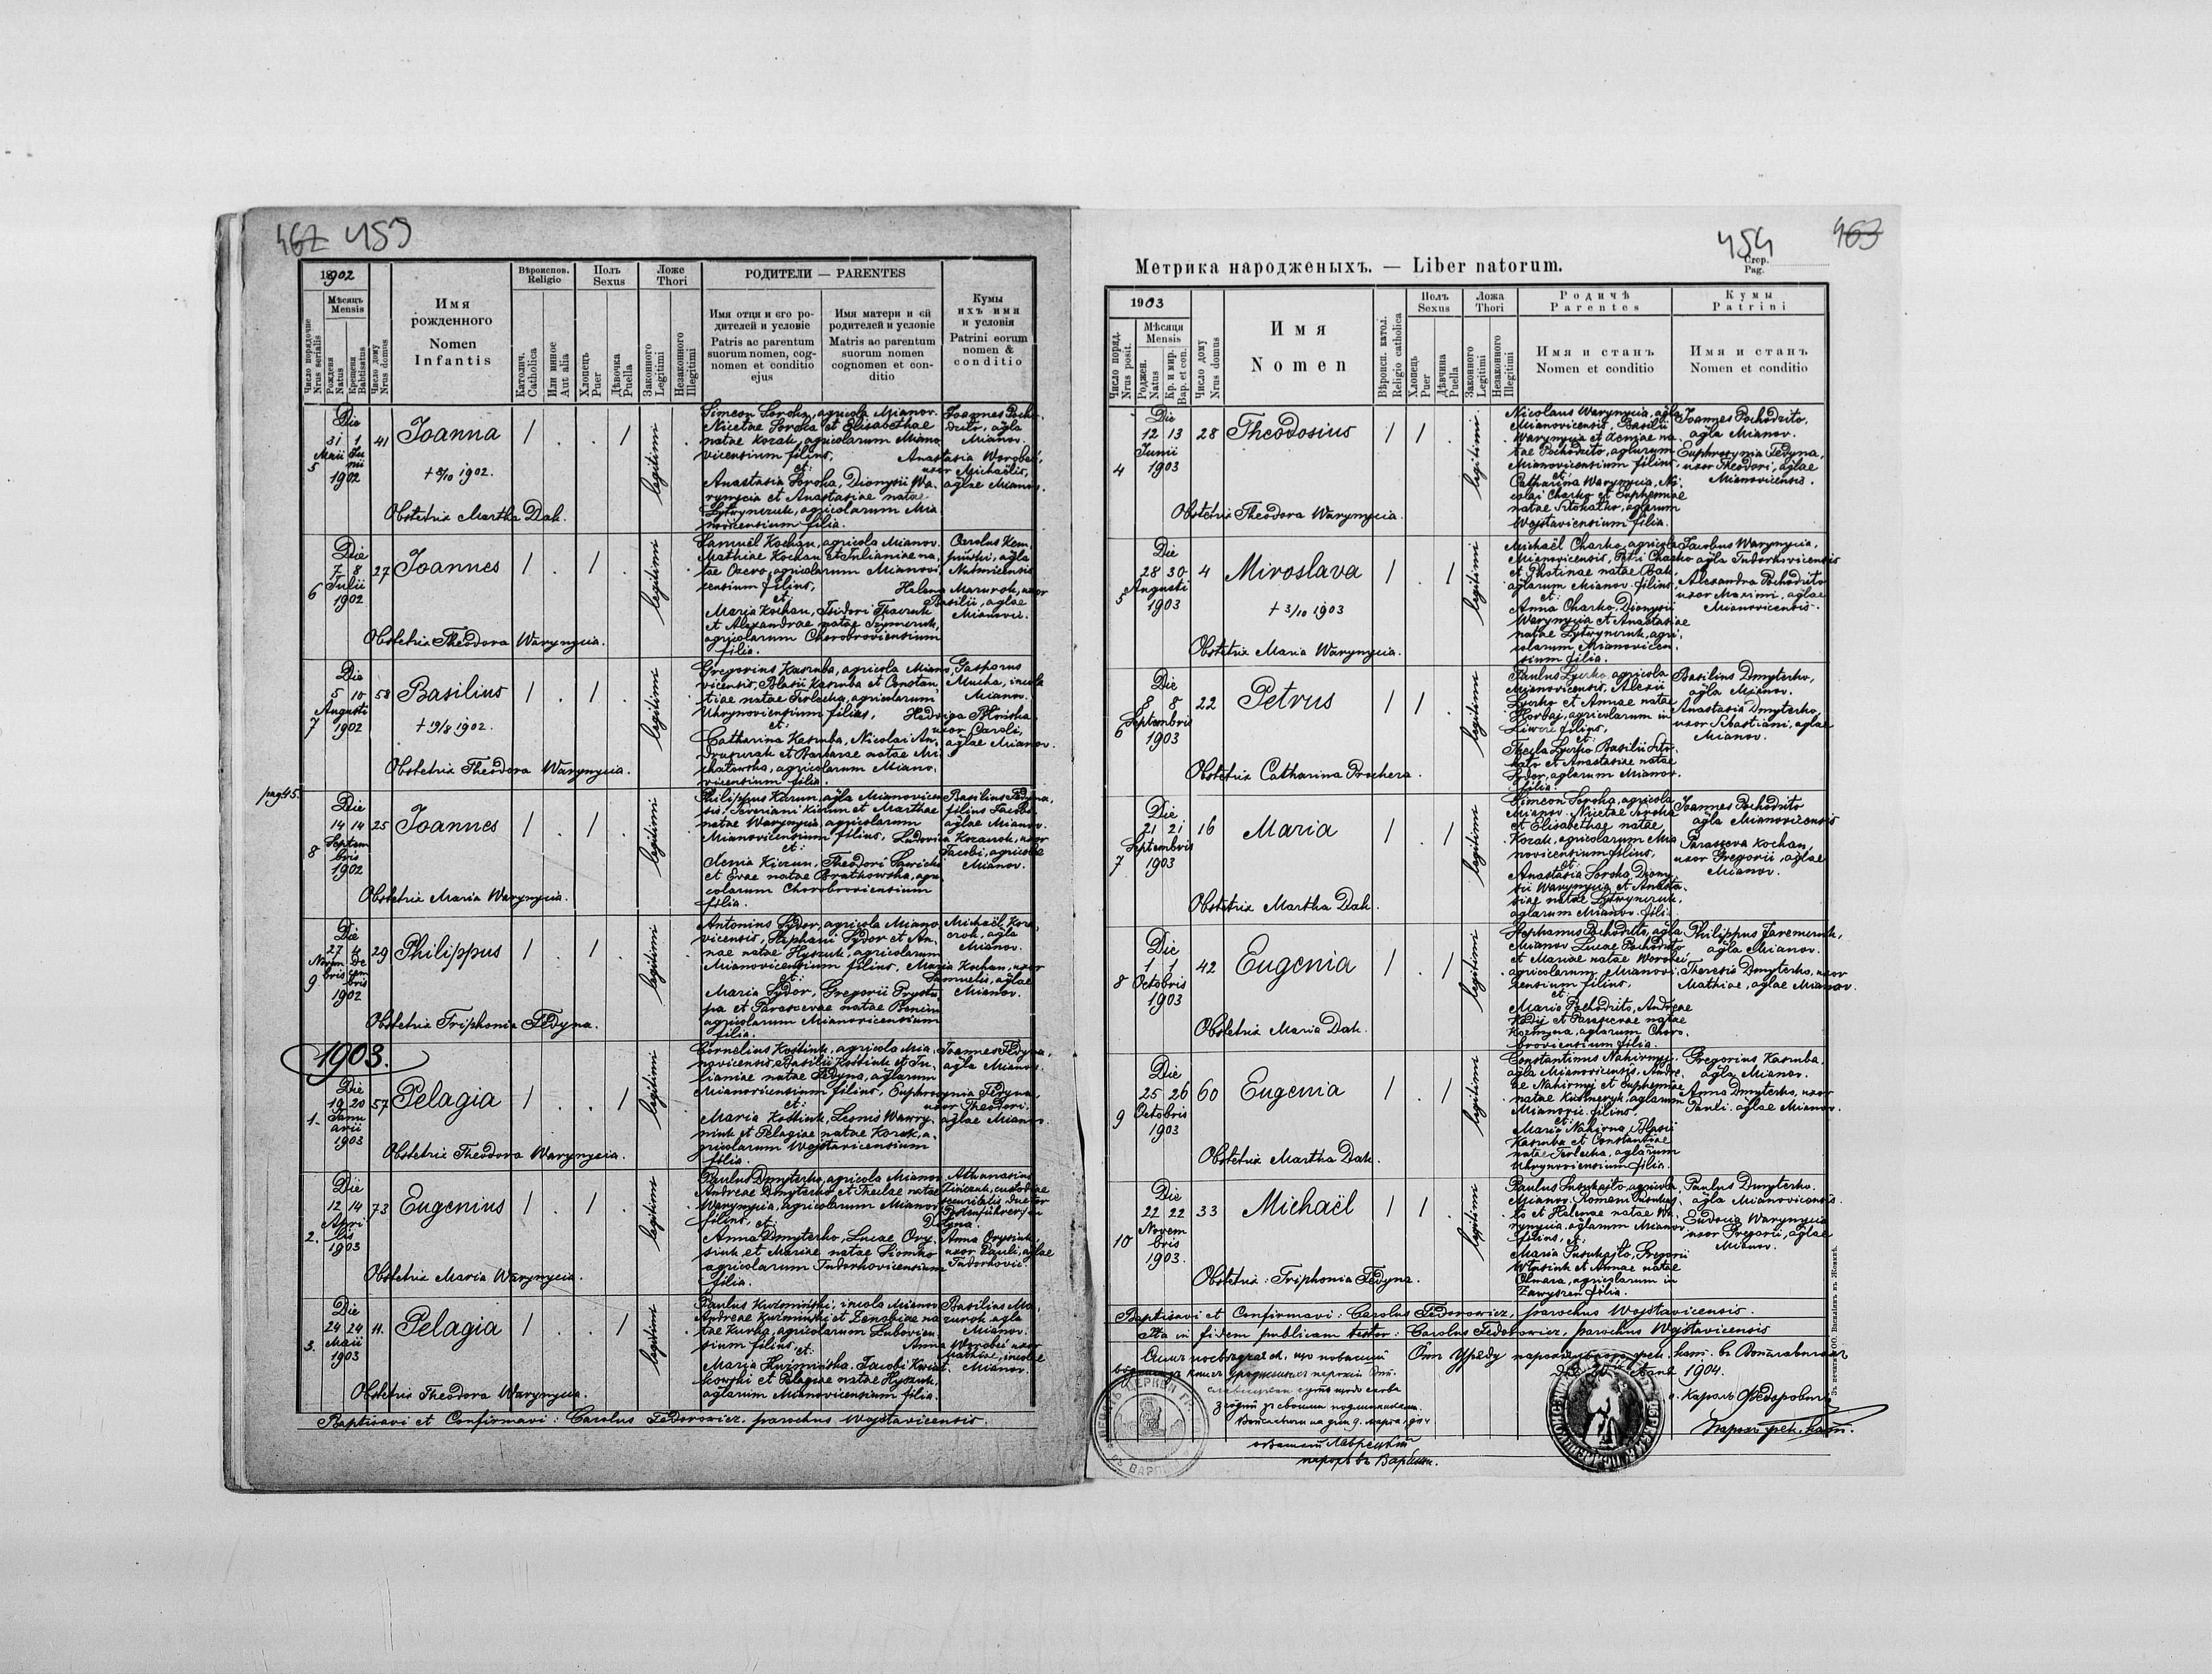 462 453
1902
Число порядочне
Nrus serialis
Мѣсяцъ
Mensis
Рождена
Natus
Крещена
Babtisatus
Число дому
Nrus domus
Имя
рожденного
Nomen
Infantis
Вѣроиспов.
Religio
Католич.
Catholica
Или инное
Aut alia
Полъ
Sexus
Хлопецъ
Puer
Дѣвочка
Puella
Ложе
Thori
Законного
Legitimi
Незаконного
Illegitimi
РОДИТЕЛИ — PARENTES
Имя отця и єго ро-
дителей и условіє
Patris ac parentum
suorum nomen, cog-
nomen et conditio
ejus
Имя матери и єй
родителей и условіє
Matris ac parentum
suorum nomen
cognomen et con-
ditio
Кумы
ихъ имя
и условія
Patrini eorum
nomen &
conditio
5
Die
31 1
Maii Ju
nii
1902
41
Joanna
† 3/10 1902.
Obstetrix Martha Dak.
legitimi
Simeon Soroka, agricola Mianov.
Nicetae Soroka et Elisabethae
natae Kozak, agricolarum Miano
vicensium filius,
et:
Anastasia Soroka, Dionysii Wa.
rynycia et Anastasiae natae
Lytwynczuk, agricolarum Mia
novicensium filia.
Joannes Pocho.
dzilo, agla
Mianov.
Anastasia Worobei,
uxor Michaëlis,
aglae Mianov.
6
Die
7 8
Julii
1902
27
Joannes
Obstetrix Theodora Warynycia.
legitimi
Samuël Kochan, agricola Mianov.
Mathiae Kochan et Julianiae na
tae Ozero, agricolarum Mianovi
censium filius,
et:
Maria Kochan, Isidori Tkaczuk
et Alexandrae natae Szymczuk,
agricolarum Chorobroviensium
filia.
Carolus Kem,
agla
Helena Mazurok, uxor
Basilii, aglae
Mianovic.
7
Die
5 10
Augusti
1902
58
Basilius
† 19/8 1902.
Obstetrix Theodora Warynycia.
legitimi
Gregorius Kasruba, agricola Miano
vicensis, Blasii Kasruba et Constan
tiae natae Trolecka, agricolarum
Uhrynoviensium filius,
et:
Catharina Kasruba, Nicolai An.
et Barbarae natae Mi
chatowska, agricolarum Miano.
vicensium filia.
Gasparus
Mucha, incola
Mianov.
Hedviga Płońska
uxor Caroli,
aglae Mianov.
pag 45.
8
Die
14 14
Septem
bris
1902
25
Joannes
Obstetrix Maria Warynycia.
legitimi
Philippus Kizun, agla Mianovicen
sis, Severiani Kizun et Marthae
natae Warynycia, agricolarum
Mianovicensium filius,
et:
Xenia Kizun, Theodori Sawicki
et Evae natae Bratkowska, agri
colarum Chorobroviensium
filia.
Basilius Fedyna,
filius Jacobi
aglae Mianov.
Ludovica Kozaczok, uxor
Jacobi, agricolae
Mianov.
9
Die
27 4
Novem De
bris cem
bris
1902
29
Philippus
Obstetrix Triphonia Fedyna.
legitimi
Antonius Sydor, agricola Miano
vicensis, Stephani Sydor et An.
nae natae Hyszuk, agricolarum
Mianovicensium filius,
et:
Maria Sydor, Gregorii Prystu,
pa et Parascevae natae
agricolarum Mianovicensium
filia.
Michaël Koza
czok, agla
Mianov.
Maria Kochan, uxor
Samuelis, aglae
Mianov.
1903.
1.
Die
19 20
Janu
arii
1903
57
Pelagia
Obstetrix Theodora Warynycia.
legitimi
Cornelius Kostiuk, agricola Mia
novicensis, Basilii Kostiuk et Ju
lianiae natae Fedyna, aglarum
Mianovicensium filius,
et:
Maria Kostiuk,
et Pelagiae natae Kozak, a.
gricolarum Wojstavicensium
filia.
Joannes Fedyna,
agla Mianov.
Euphrozynia Fedyna,
uxor Theodori,
aglae Mianov.
2.
Die
12 14
Apri
lis
1903
73
Eugenius
Obstetrix Maria Warynycia.
legitimi
Paulus Dmyterko, agricola Mianov
Andreae Dmyterko et Theclae natae
Warynycia, agricolarum Mianov
filius, et:
Anna Dmyterko, Lucae Ory.
siuk et Mariae natae Siomko
agricolarum Tudorkovicensium
filia.
Athanasius
custodiae
securitatis ductor
Postenführer in
Dolyna.
Anna Orysiuk,
uxor Pauli, aglae
Tudorkovic.
3.
Die
24 24
Maii
1903
11.
Pelagia
Obstetrix Theodora Warynycia.
legitimi
Paulus Kuźmiński, incola Mianov
Andreae Kuźmiński et Zenobiae na
tae Kurka, agricolarum
sium filius, et:
Maria Kuźmińska, Jacobi Kwiat
kowski et Pelagiae natae Hyszuk,
aglarum Mianovicensium filia.
Basilius Ma,
zurok agla
Mianov.
Anna Worobei uxor
Mathiae, incolae
Mianov.
Baptisavi et Confirmavi: Carolus Fedorowicz, parochus Wojstavicensis.
454 463
Метрика народженыхъ. — Liber natorum.
Стор.
Pag.
1903
Число поряд.
Nrus posit.
Мѣсяця
Mensis
Роджен.
Natus
Кр. и мир.
Bap. et con.
Число дому
Nrus domus
Имя
Nomen
Вѣроисп. катол.
Religio catholica
Полъ
Sexus
Хлопець
Puer
Дѣвчина
Puella
Ложа
Thori
Законного
Legitimi
Незаконного
Illegitimi
Родичѣ
Parentes
Имя и станъ
Nomen et conditio
Кумы
Patrini
Имя и станъ
Nomen et conditio
4
Die
12 13
Junii
1903
28
Theodosius
Obstetrix Theodora Warynycia.
legitimi
Nicolaus Warynycia, agla
Mianovicensis, Basilii
Warynycia et Xeniae na.
tae Pochodzilo, aglarum
Mianovicensium filius,
et:
Catharina Warynycia, Ni
colai Charko et Euphemiae
natae aglarum
Wojstavicensium filia.
Joannes Pochodzilo,
agla Mianov.
Euphrozynia Fedyna,
uxor Theodori, aglae
Mianovicensis.
5
Die
28 30
Augusti
1903
4
Miroslava
† 3/10 1903
Obstetrix Maria Warynycia.
legitimi
Michaël Charko, agricola
Mianovicensis, Petri Charko
et Photinae natae Bak,
aglarum Mianov. filius,
et:
Anna Charko, Dionysii
Warynycia et Anastasiae
natae Lytwynczuk, agri.
colarum Mianovicen.
sium filia.
Jacobus Warynycia,
agla Tudorkovicensis
Alexandra Pochodzilo
uxor Maximi, aglae
Mianovicensis.
6
Die
8 8
Septembris
1903
22
Petrus
Obstetrix Catharina Prochera.
legitimi
Paulus Lyczko, agricola
Mianovicensis, Alexii
Lyczko et Annae natae
Horbaj, agricolarum in
Liwcze filius,
et:
Thecla Lyczko Basilii
et Anastasiae natae
Sydor, aglarum Mianov.
filia.
Basilius Dmyterko,
agla Mianov.
Anastasia Dmyterko,
uxor Sebastiani, aglae
Mianov.
7
Die
21 21
Septembris
1903
16
Maria
Obstetrix Martha Dak.
legitimi
Simeon Soroka, agricola
Mianov. Nicetae Soroka
et Elisabethae natae
Kozak, agricolarum Mia
novicensium filius,
et:
Anastasia Soroka, Diony
sii Warynycia et Anasta.
siae natae Lytwynczuk,
aglarum Mianov. filia
Joannes Pochodzilo
agla Mianovicensis
Parasceva Kochan,
uxor Gregorii, aglae
Mianov.
8
Die
1 1
Octobris
1903
42
Eugenia
Obstetrix Maria Dak.
legitimi
Stephanus Pochodzilo, agla
Mianov. Lucae Pochodzilo
et Mariae natae Worobei
agricolarum Mianovi.
censium filius,
et:
Maria Pochodzilo, Andreae
et Parascevae natae
Kozmyna, aglarum Choro.
broviensium filia.
Philippus Jaremczuk,
agla Mianov.
Theresia Dmyterko, uxor
Mathiae, aglae Mianov.
9
Die
25 26
Octobris
1903
60
Eugenia
Obstetrix Martha Dak.
legitimi
Constantinus Nahirnyj,
agla Mianovicensis, Andre.
ae Nahirnyj et Euphemiae
natae aglarum
Mianovic. filius
et:
Maria Nahirna, Blasii
Kasruba et Constantiae
natae Trolecka, aglarum
Uhrynoviensium filia.
Gregorius Kasruba,
agla Mianov.
Anna Dmyterko, uxor
Pauli, aglae Mianov.
10
Die
22 22
Novem
bris
1903.
33
Michaël
Obstetrix: Triphonia Fedyna.
legitimi
Paulus Susukajło, agricola
Mianov. Romani Susukaj.
ło et Helenae natae Wa.
rynycia, aglarum Mianov.
filius, et:
Maria Susukajło, Gregorii
Własiuk et Annae natae
Chmara, agricolarum in
Zawyszeń filia.
Paulus Dmyterko.
agla Mianovicensis.
Eudocia Warynycia
uxor Gregorii, aglae
Mianov.
Baptisavi et Confirmavi: Carolus Fedorowicz, parochus Wojstavicensis.
Ita in fidem publicam testor: Carolus Fedorowicz, parochus Wojstavicensis
1904.
о. Кароль Федоровичъ
парохъ гр. кат.
парохъ въ
Зъ печатнѣ ОО. Василіянъ въ Жовквѣ.